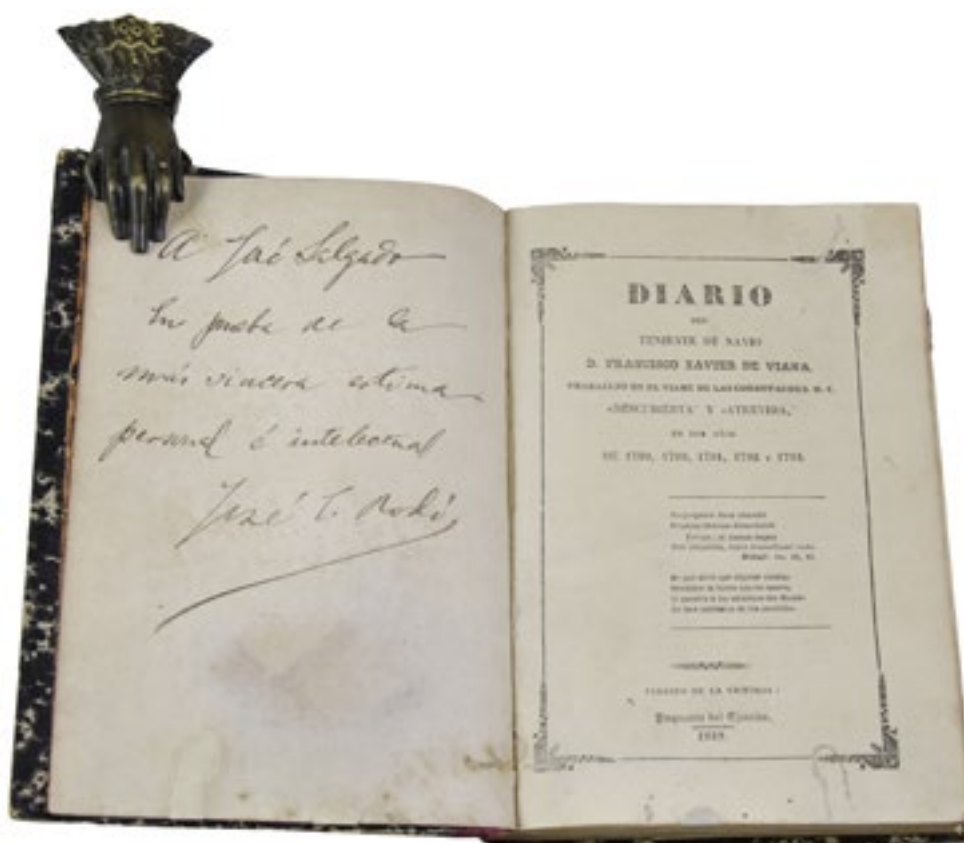 A José Salgado
En prueba de la
más sincera estima
personal é intelectual
José E. Rodó
DIARIO
DEL
TENIENTE DE NAVIO
D. FRANCISCO XAVIER DE VIANA,
TRABAJADO EN EL VIAJE DE LAS CORBETAS DE S. M. C.
"DESCUBIERTA" Y "ATREVIDA,"
EN LOS AÑOS
DE 1789, 1790, 1791, 1792 y 1793.
CERRITO DE LA VICTORIA:
Imprenta del Ejército.
1849.